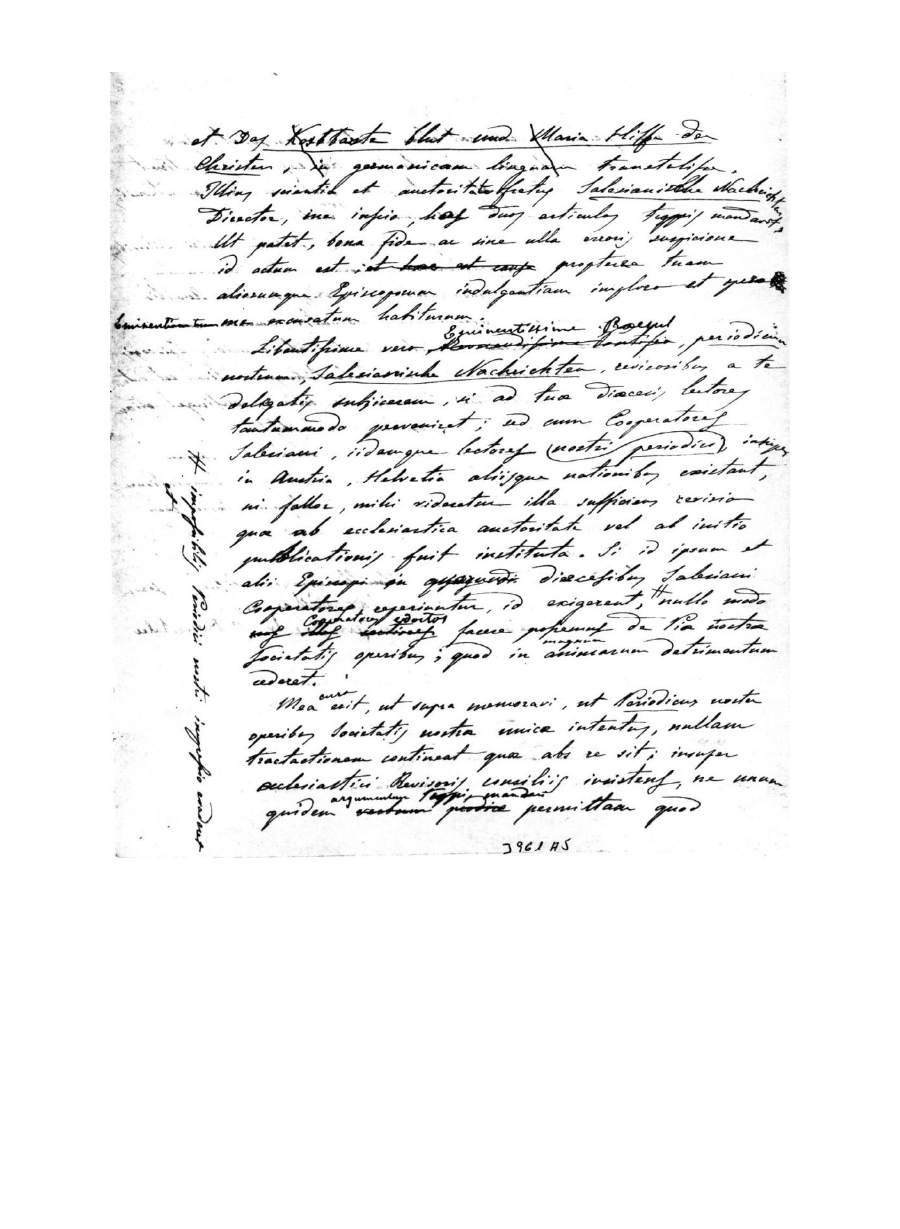 et Das Kostbarste blut und Maria Hilff der
Christen, in germanicam linguam transtulisse.
Illius scientia et auctoritate fretus Salesianische Nachrichten
Director, me inscio, hos duos articulos typis mandavit.
Ut patet, bona fide ac sine ulla erroris suspicione
id actum est, et hac est causa propterea tuam
aliorumque Episcoporum indulgentiam imploro et spero
Eminentiam tuam me excusatum habiturum.
Eminentissime
Libentissime vero Reverendissime Pontifex, periodicum
nostrum, Salesianische Nachrichten, revisoribus a te
delegatis subjicerem, si ad tuæ diœcesis lectores
tantummodo perveniret; sed cum Cooperatores
Salesiani, iidemque lectores (nostri periodici),
in Austria, Helvetia aliisque nationibus existant,
ni fallor, mihi videretur illa sufficiens revisio
quæ ab ecclesiastica auctoritate vel ab initio
publicationis fuit instituta. Si id ipsum et
alii Episcopi in diœcesibus Salesiani
Cooperatores reperiuntur, id exigerent, # nullo modo
Cooperatores edoctos
nos illos facere possemus de Piæ nostræ
magnum
Societatis operibus; quod in animarum detrimentum
cederet.
cura
Mea erit, ut supra memoravi, ut Periodicus noster
operibus Societatis nostræ unice intentus, nullam
tractationem contineat quæ abs re sit; insuper
ecclesiastici Revisoris consiliis insistens, ne unum
argumentum typis mandari
quidem verbum prodire permittam quod
3961 A5
# impossibilis Periodici nostri impressio evaderet
et